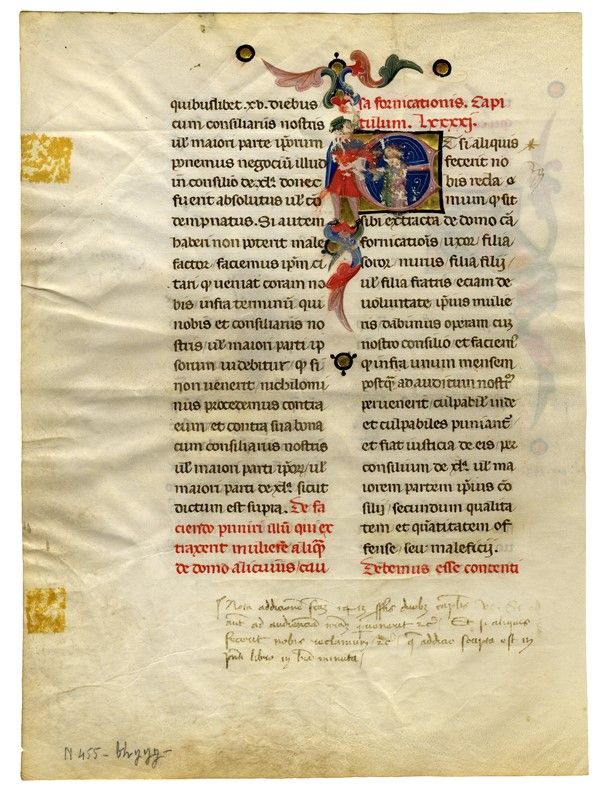 quibuslibet .xv. diebus
cum consiliariis nostris
ul' maiori parte ip̄orum
ponemus negociū illud
in consilio de .xl.ᵃ donec
fuerit absolutus ul' cō
dempnatus. Si autem
haberi non poterit male
factor / faciemus ip̄m ci
tari qͥ ueniat coram no
bis infra terminū qui
nobis et consiliariis no
stris / ul' maiori parti ip
sorum uidebitur / qͥ si
non uenerit nichilomi
nus procedemus contra
eum et contra sua bona
cum consiliariis nostris
ul' maiori parti ip̄oꝝ / ul'
maiori parti de .xl.ᵃ sicut
dictum est supra. De fa
ciendo puniri illū qui ex
traxerit mulierē aliqͣ̄
de domo alicuius / cau
sa fornicationis. Capi
tulum. Lxxxxj.
Et si aliquis
fecerit no
bis recla
mum qͥ sit
sibi extracta de domo cā
fornicatiōis / uxor / filia /
soror / nurus / filia filij /
ul' filia fratris eciam de
uoluntate ipsius mulie
ris / dabimus operam cū
nostro consilio et faciem9
qͥ infra unum mensem
postqͣ̄ ad auditum nostꝝ
peruenerit / culpabil' inde
et culpabiles puniant᷑
et fiat iusticia de eis / per
consilium de .xl.ᵃ ul' ma
iorem partem ipsius cō
silij / secundum qualita
tem et quātitatem of
fense / seu maleficij.
Debemus esse contenti
23
Nota addicionem
ad audienciam
fecerit nobis reclamum / &c / qͥ addicio scripta est in
libro in minuta
N 455 -